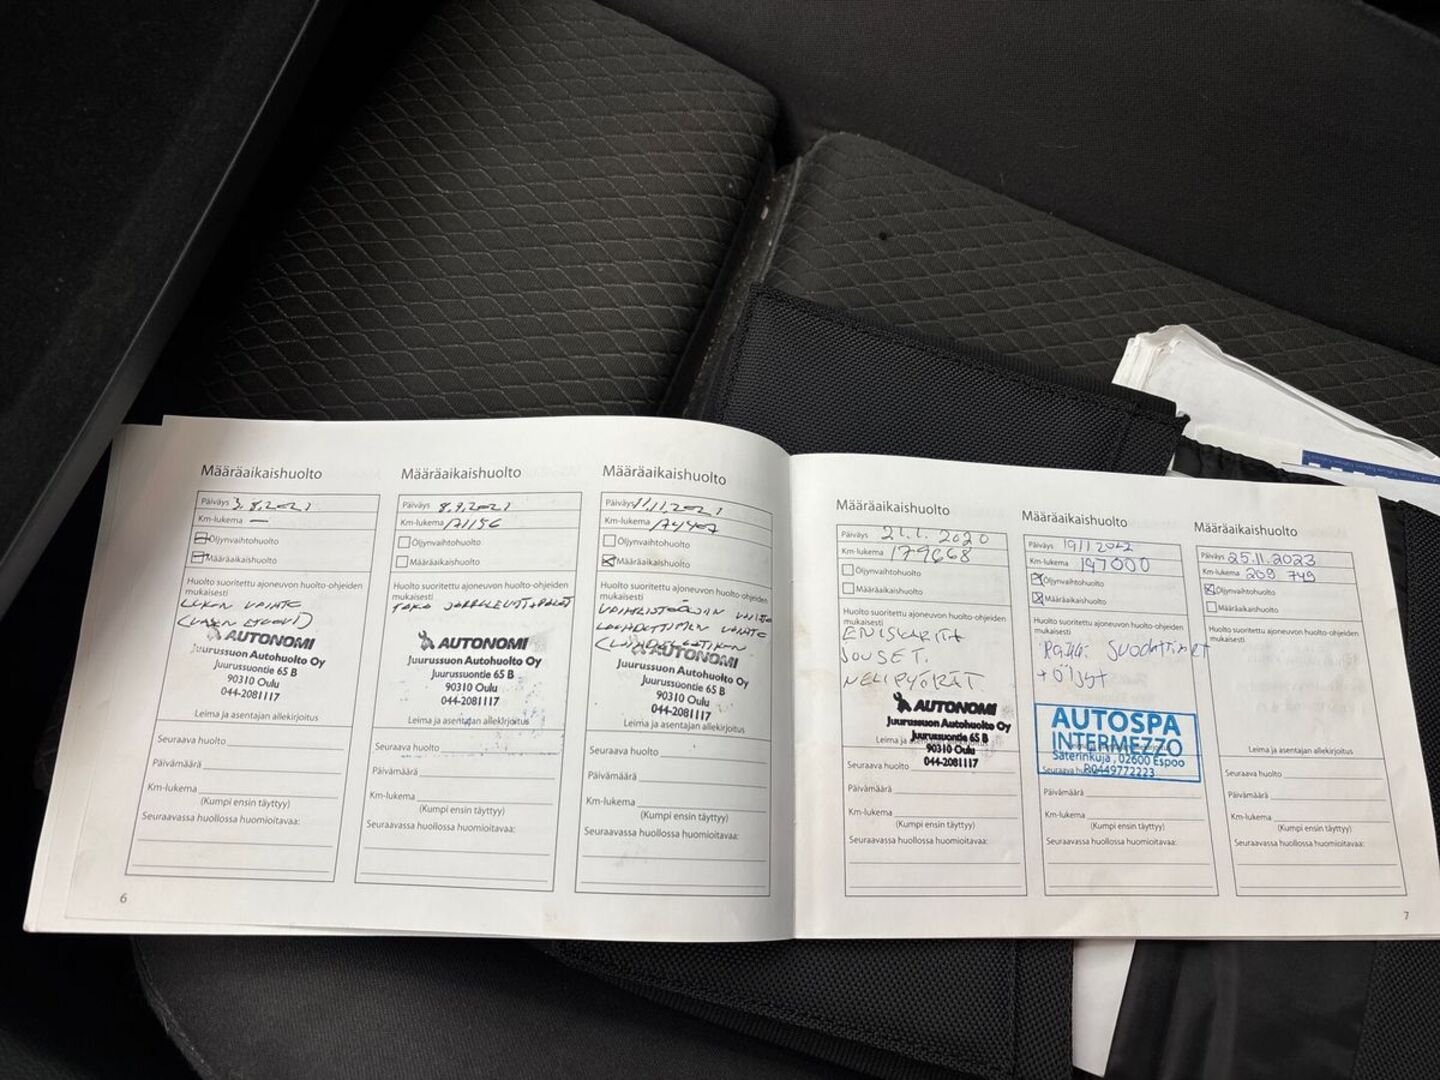 Määräaikaishuolto
Päiväys 3.8.2021
Km-lukema —
Öljynvaihtohuolto
Määräaikaishuolto
Huolto suoritettu ajoneuvon huolto-ohjeiden
mukaisesti
LUKON VAIHTO
AUTONOMI
Juurussuon Autohuolto Oy
Juurussuontie 65 B
90310 Oulu
044-2081117
Leima ja asentajan allekirjoitus
Seuraava huolto
Päivämäärä
Km-lukema
(Kumpi ensin täyttyy)
Seuraavassa huollossa huomioitavaa:
6
Määräaikaishuolto
Päiväys 8.9.2021
Km-lukema 171156
Öljynvaihtohuolto
Määräaikaishuolto
Huolto suoritettu ajoneuvon huolto-ohjeiden
mukaisesti
TAKA JARRULEVYT+PALAT
AUTONOMI
Juurussuon Autohuolto Oy
Juurussuontie 65 B
90310 Oulu
044-2081117
Leima ja asentajan allekirjoitus
Seuraava huolto
Päivämäärä
Km-lukema
(Kumpi ensin täyttyy)
Seuraavassa huollossa huomioitavaa:
Määräaikaishuolto
Päiväys 11.11.2021
Km-lukema 174407
Öljynvaihtohuolto
Määräaikaishuolto
Huolto suoritettu ajoneuvon huolto-ohjeiden
mukaisesti
VAIHTO
AUTONOMI
Juurussuon Autohuolto Oy
Juurussuontie 65 B
90310 Oulu
044-2081117
Leima ja asentajan allekirjoitus
Seuraava huolto
Päivämäärä
Km-lukema
(Kumpi ensin täyttyy)
Seuraavassa huollossa huomioitavaa:
Määräaikaishuolto
Päiväys 2020
Km-lukema 179668
Öljynvaihtohuolto
Määräaikaishuolto
Huolto suoritettu ajoneuvon huolto-ohjeiden
mukaisesti
JOUSET.
NELIPYÖRÄT.
AUTONOMI
Juurussuon Autohuolto Oy
Juurussuontie 65 B
90310 Oulu
044-2081117
Seuraava huolto
Päivämäärä
Km-lukema
(Kumpi ensin täyttyy)
Seuraavassa huollossa huomioitavaa:
Määräaikaishuolto
Päiväys 19/1 2022
Km-lukema 197000
Öljynvaihtohuolto
Määräaikaishuolto
Huolto suoritettu ajoneuvon huolto-ohjeiden
mukaisesti
Suodattimet
+ Öljyt
AUTOSPA
INTERMEZZO
Säterinkuja, 02600 Espoo
P.0449772223
Seuraava huolto
Päivämäärä
Km-lukema
(Kumpi ensin täyttyy)
Seuraavassa huollossa huomioitavaa:
Määräaikaishuolto
Päiväys 25.11.2023
Km-lukema 209 749
Öljynvaihtohuolto
Määräaikaishuolto
Huolto suoritettu ajoneuvon huolto-ohjeiden
mukaisesti
Leima ja asentajan allekirjoitus
Seuraava huolto
Päivämäärä
Km-lukema
(Kumpi ensin täyttyy)
Seuraavassa huollossa huomioitavaa:
7